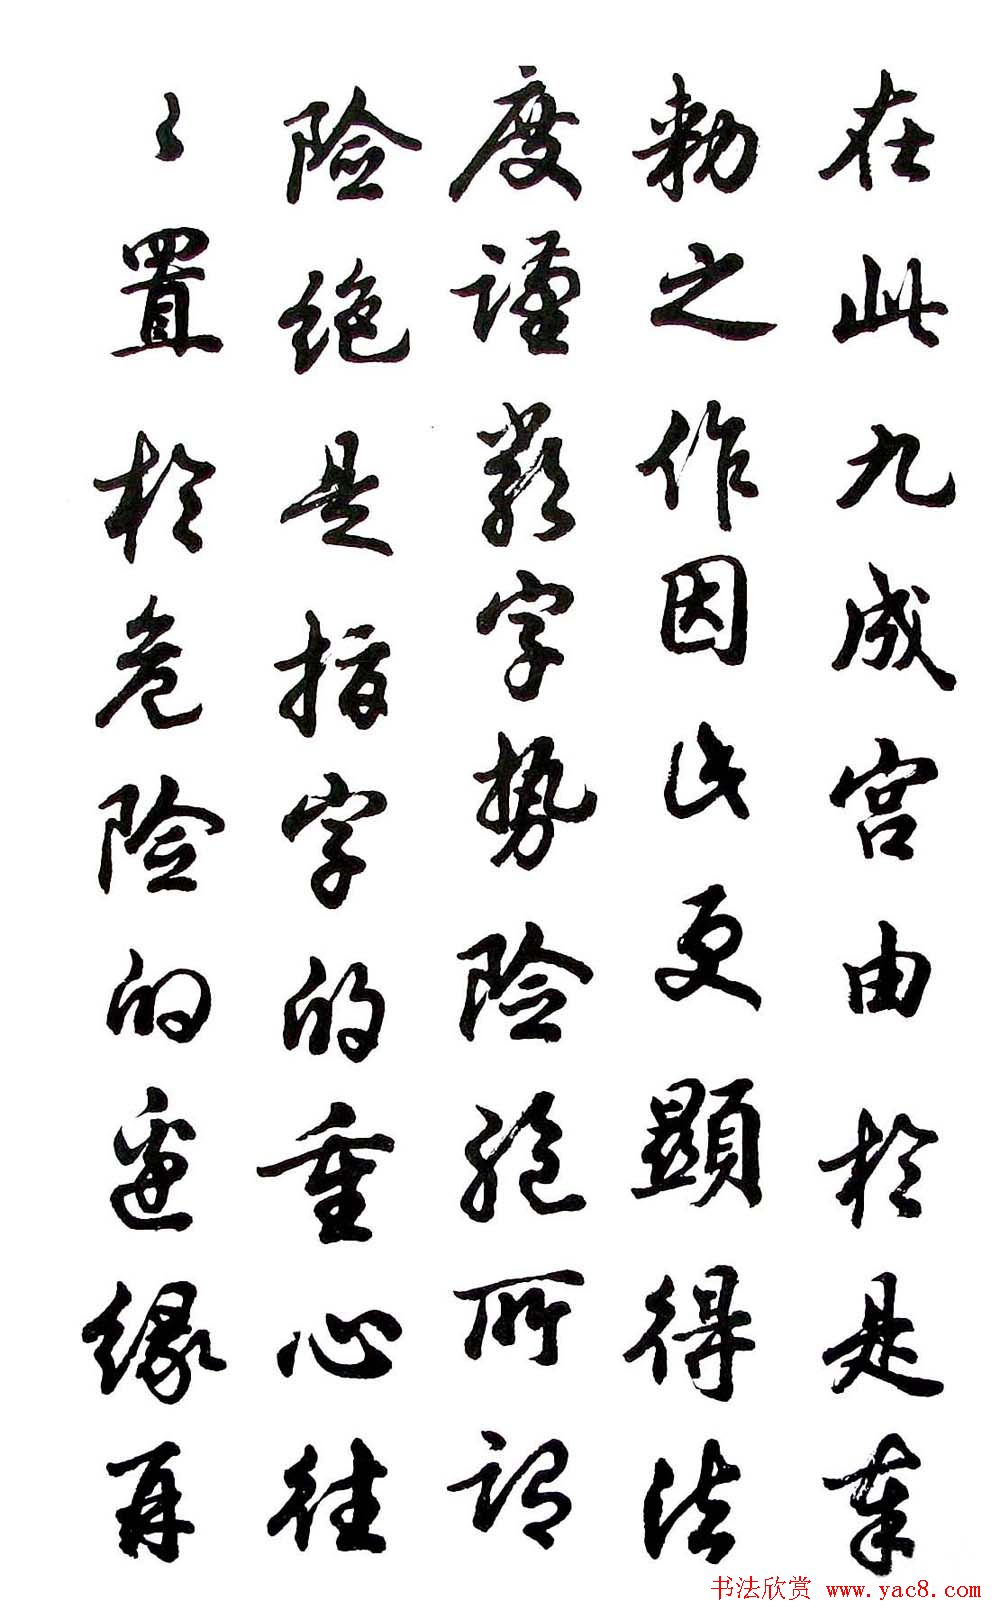 在此九成宫由於是奉
勅之作因此更顯得法
度谨嚴字势险绝所谓
险绝是指字的重心往
々置於危险的邊缘再
书法欣赏 www.yac8.com